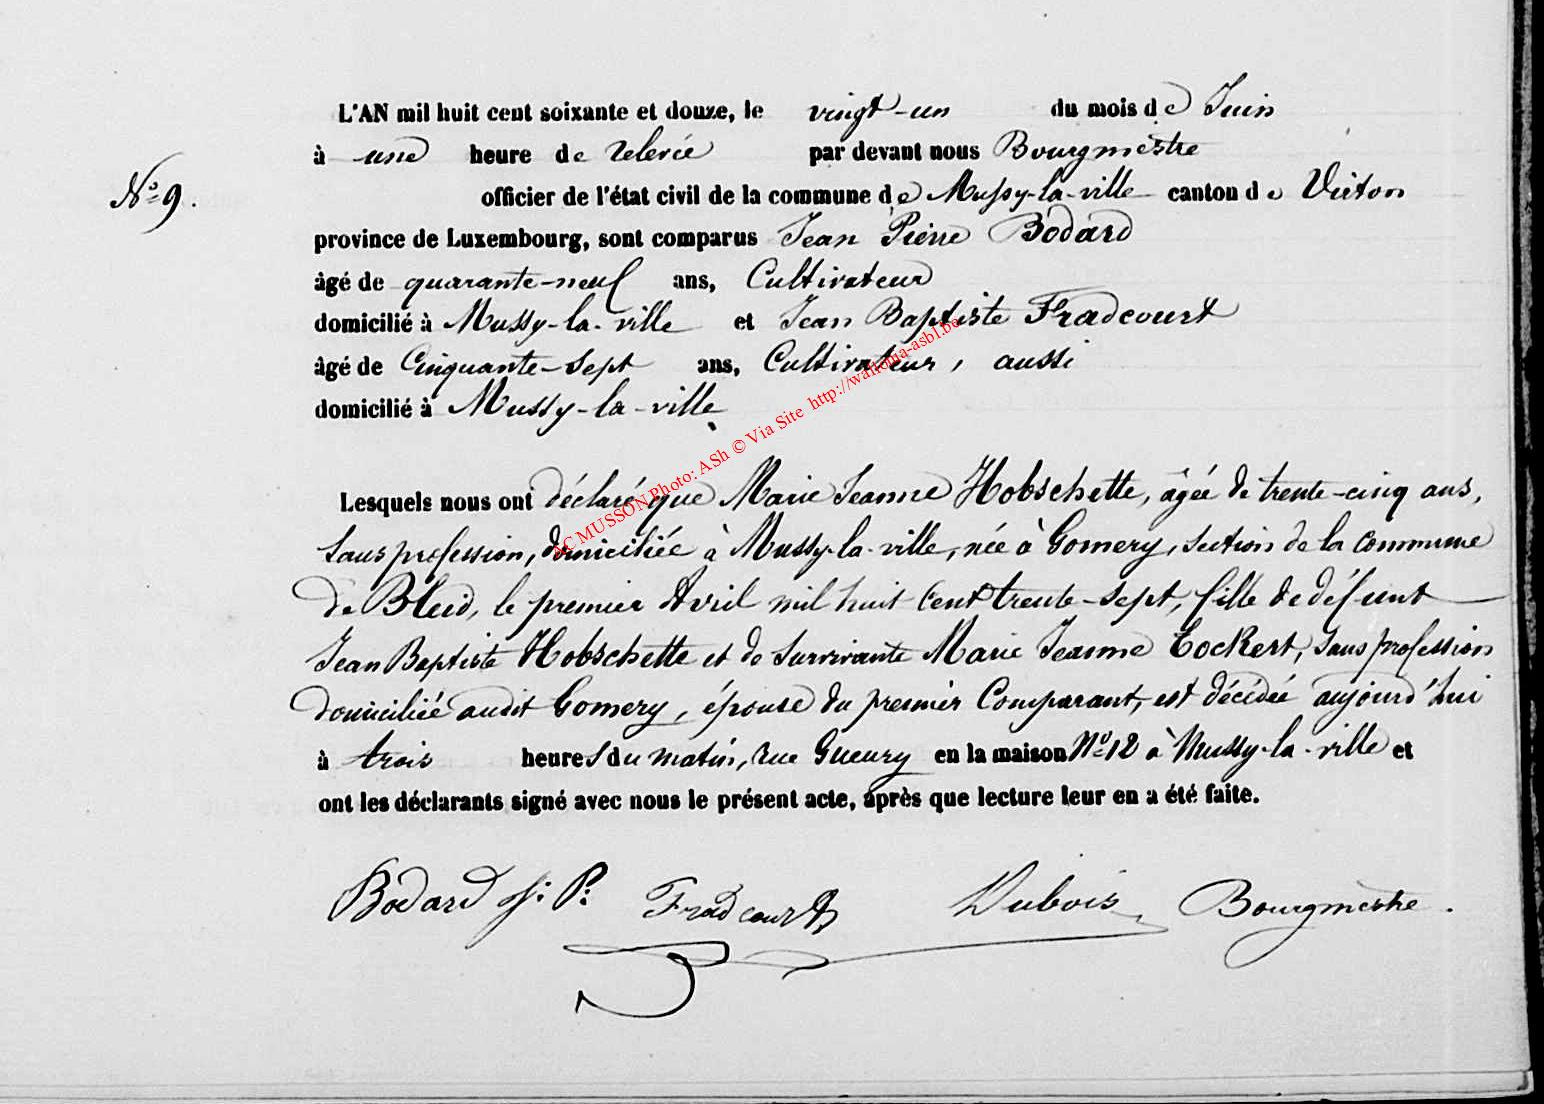 L'AN mil huit cent soixante et douze, le vingt-un du mois de Juin
à une heure de relevée par devant nous Bourgmestre
N° 9.
officier de l'état civil de la commune de Mussy-la-ville canton de Virton
province de Luxembourg, sont comparus Jean Pierre Bodard
âgé de quarante-neuf ans, Cultivateur
domicilié à Mussy-la-ville et Jean Baptiste Fradcourt
âgé de Cinquante-sept ans, Cultivateur, aussi
domicilié à Mussy-la-ville
AC MUSSON Photo: ASh © Via Site http://wallonia-asbl.be
Lesquels nous ont déclaré que Marie Jeanne Hobschette, âgée de trente-cinq ans,
sans profession, domiciliée à Mussy-la-ville, née à Gomery, section de la commune
de Bleid, le premier Avril mil huit cent trente-sept, fille de défunt
Jean Baptiste Hobschette et de survivante Marie Jeanne Cockert, sans profession
domiciliée audit Gomery, épouse du premier Comparant, est décédée aujourd'hui
à trois heures du matin, rue Gueury en la maison N° 12 à Mussy-la-ville et
ont les déclarants signé avec nous le présent acte, après que lecture leur en a été faite.
Bodard J: P: Fradcourt Dubois Bourgmestre.